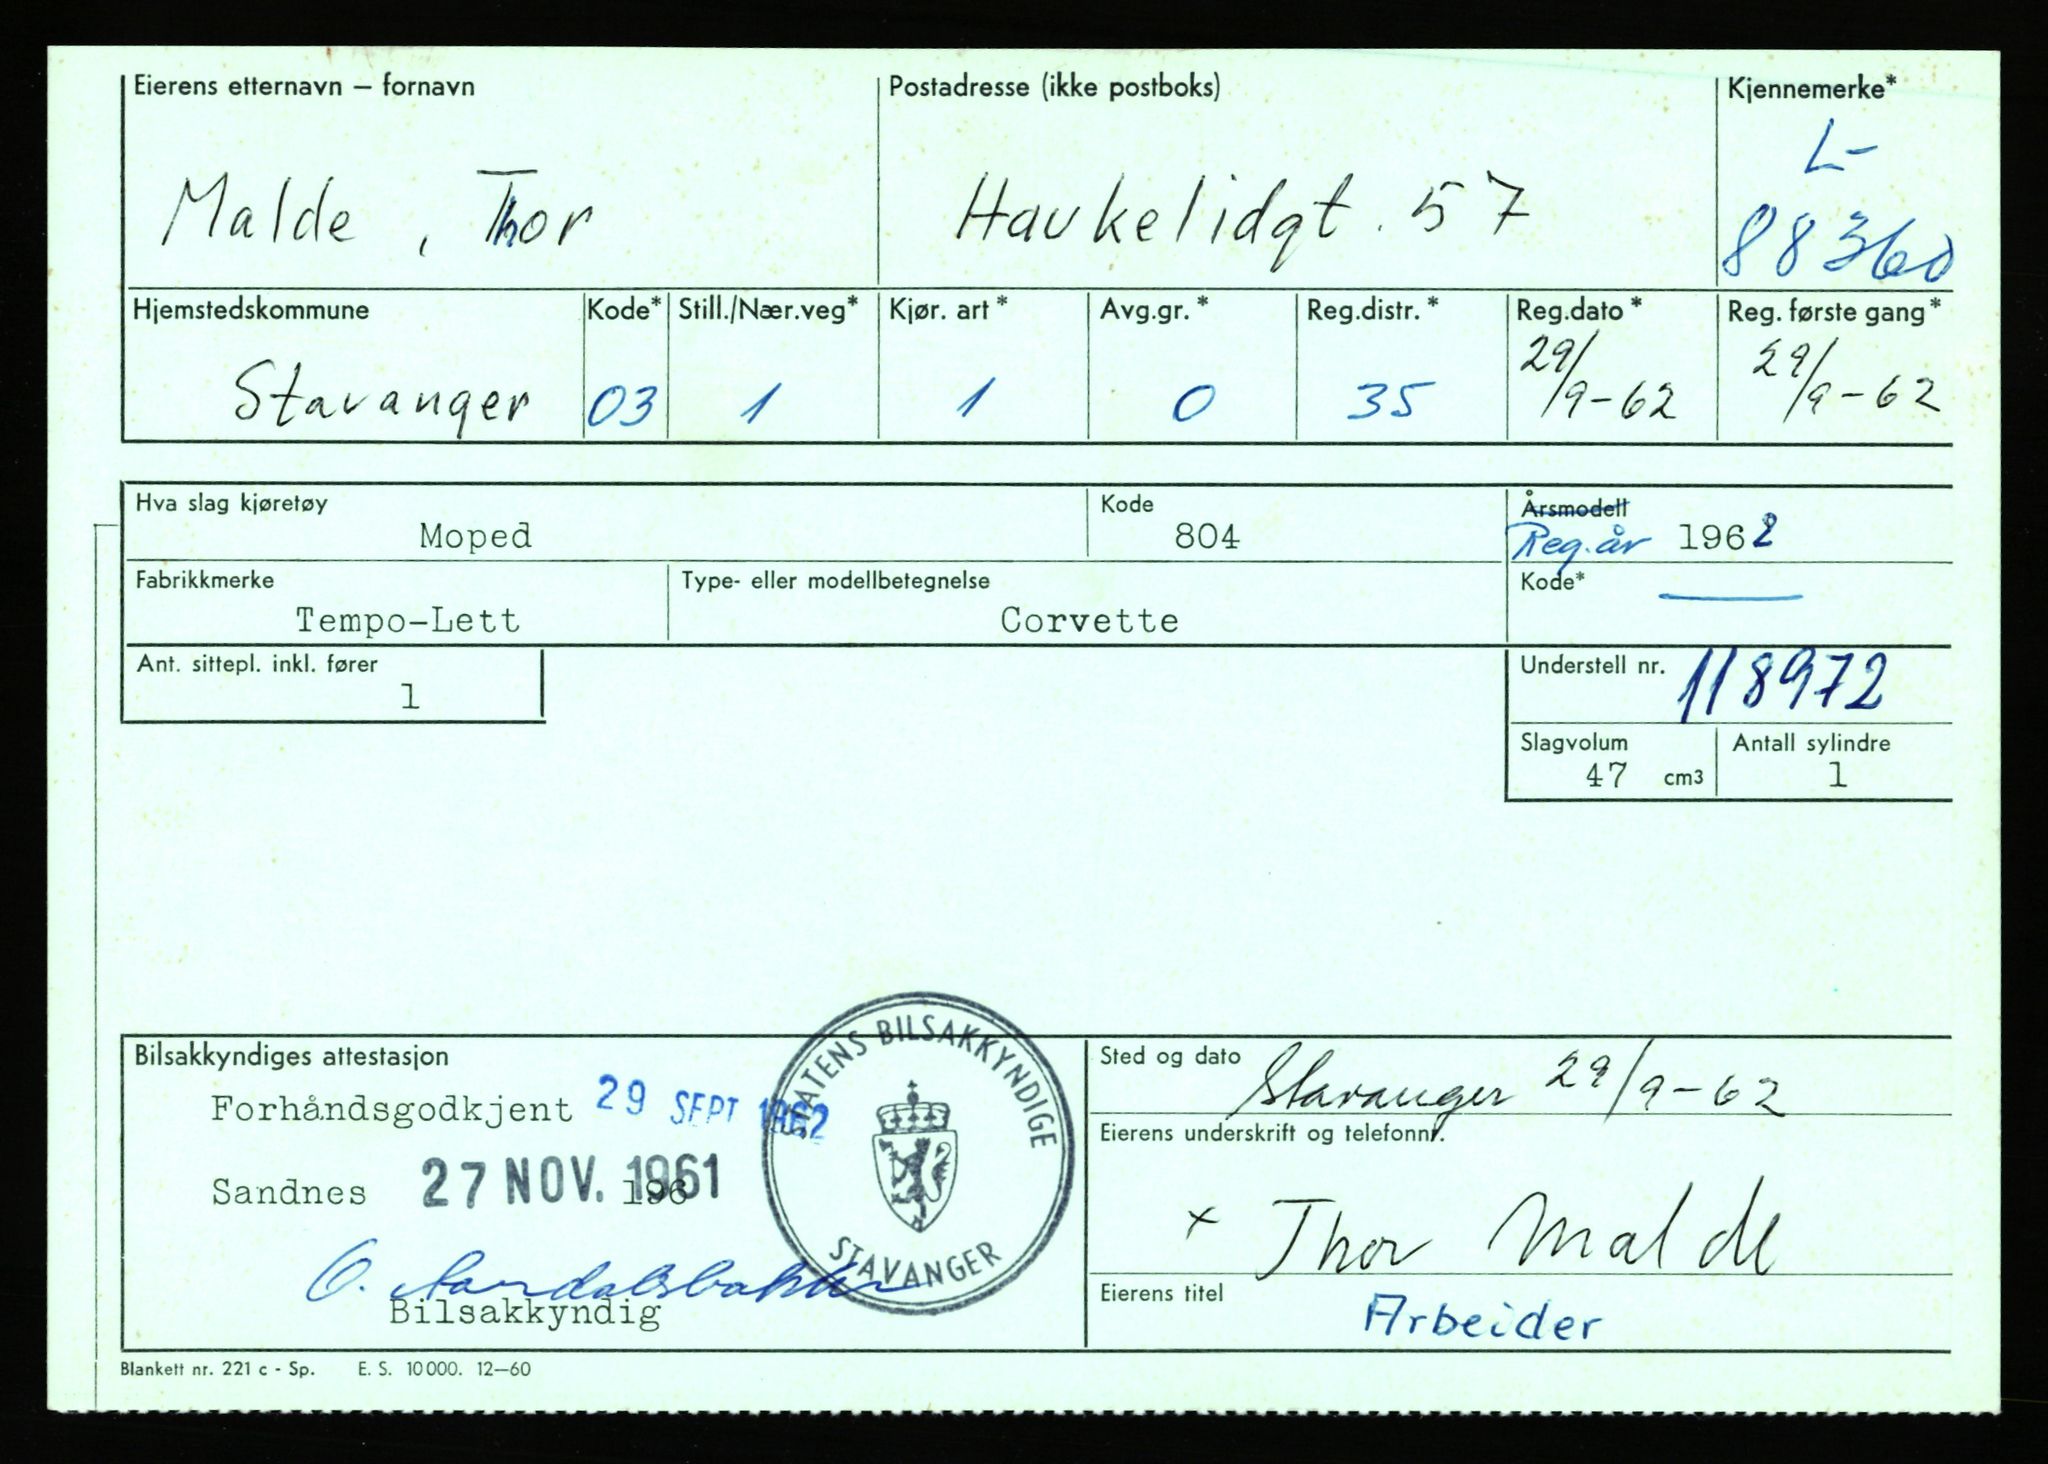 Eierens etternavn – fornavn Postadresse (ikke postboks) Kjennemerke*
Malde, Thor Haukelidgt. 57 L-88360
Hjemstedskommune Kode* Still./Nær.veg* Kjør. art* Avg.gr.* Reg.distr.* Reg.dato* Reg. første gang*
Stavanger 03 1 1 0 35 29/9-62 29/9-62
Hva slag kjøretøy Kode Årsmodell
Moped 804 Reg.år 1962
Fabrikkmerke Type- eller modellbetegnelse Kode*
Tempo-Lett Corvette
Ant. sittepl. inkl. fører Understell nr. 118972
1
Slagvolum Antall sylindre
47 cm3 1
Bilsakkyndiges attestasjon
Forhåndsgodkjent 29 SEPT 1962
Sandnes 27 NOV. 1961 196
O.
Bilsakkyndig
STATENS BILSAKKYNDIGE
STAVANGER
Sted og dato Stavanger 29/9-62
Eierens underskrift og telefonnr.
x Thor Malde
Eierens titel
Arbeider
Blankett nr. 221 c - Sp. E. S. 10 000. 12—60